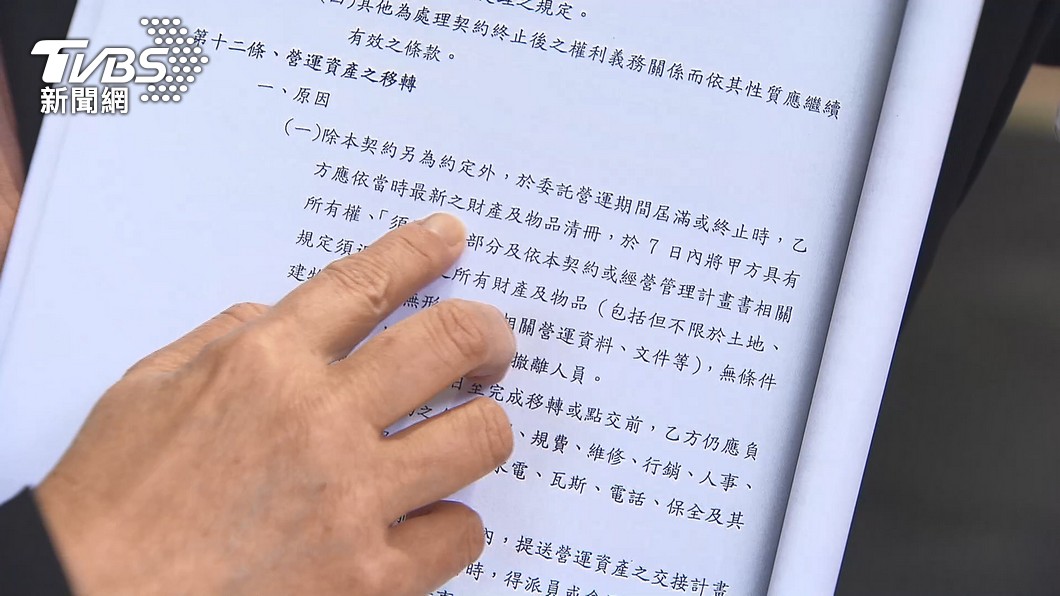 TVBS
新聞網
理之規定。
其他為處理契約終止後之權利義務關係而依其性質應繼續
有效之條款。
第十二條、營運資產之移轉
一、原因
(一)除本契約另為約定外，於委託營運期間屆滿或終止時，乙
方應依當時最新之財產及物品清冊，於 7 日內將甲方具有
所有權、「須 部分及依本契約或經營管理計畫書相關
規定須 所有財產及物品（包括但不限於土地、
建 無形 相關營運資料、文件等），無條件
撤離人員。
日至完成移轉或點交前，乙方仍應負
之 、規費、維修、行銷、人事、
水電、瓦斯、電話、保全及其
內，提送營運資產之交接計畫
時，得派員或